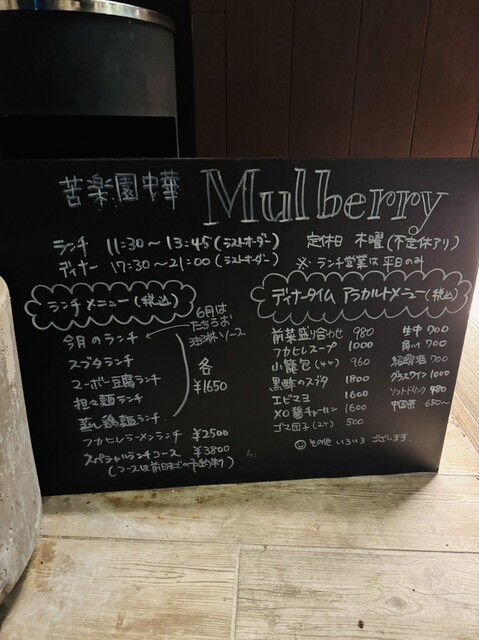 苦楽園中華 Mulberry
ランチ 11:30〜13:45(ラストオーダー)
ディナー 17:30〜21:00(ラストオーダー)
定休日 木曜(不定休アリ)
※ ランチ営業は平日のみ
ランチメニュー(税込)
今月のランチ
6月は
たちうお
油淋ソース
スブタランチ
マーボー豆腐ランチ
担々麺ランチ
蒸し鶏麺ランチ
各
¥1650
フカヒレラーメンランチ ¥2500
スペシャルランチコース ¥3800
(コースは前日までの予約制)
ディナータイム アラカルトメニュー(税込)
前菜盛り合わせ 980
フカヒレスープ 1000
小籠包(4ヶ) 960
黒酢のスブタ 1800
エビマヨ 1600
XO醤チャーハン 1600
ゴマ団子(2ヶ) 500
その他 いろいろ ございます。
生中 700
角ハイ 700
紹興酒 700
グラスワイン 1000
ソフトドリンク 480
中国茶 650〜